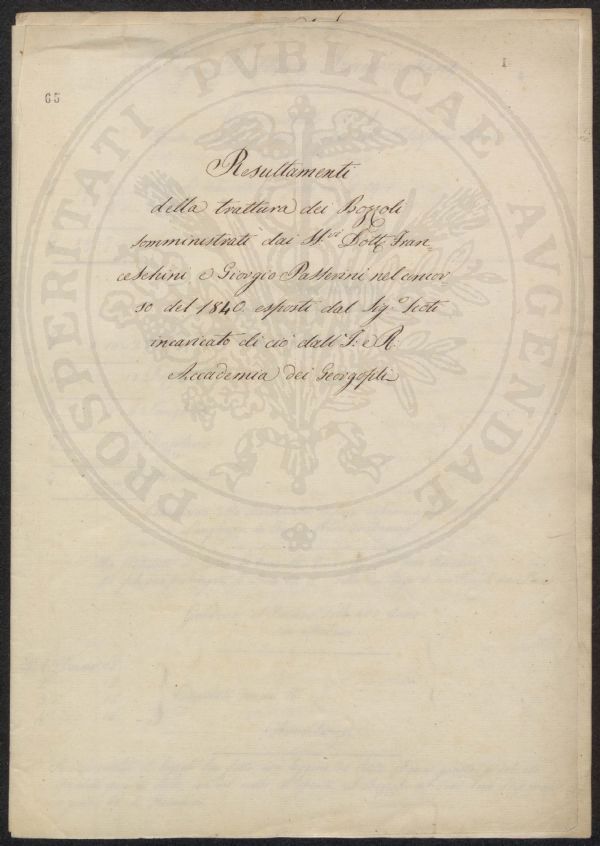 PROSPERITATI PVBLICAE AVGENDAE
I
65
Resultamenti
della trattura dei Bozzoli
somministrati dai SS.ri Dott. Fran=
ceschini e Giorgio Passerini nel concor
so del 1840. esposti dal Sig.e Scoti
incaricato di ciò dall' I: e R:
Accademia dei Georgofili